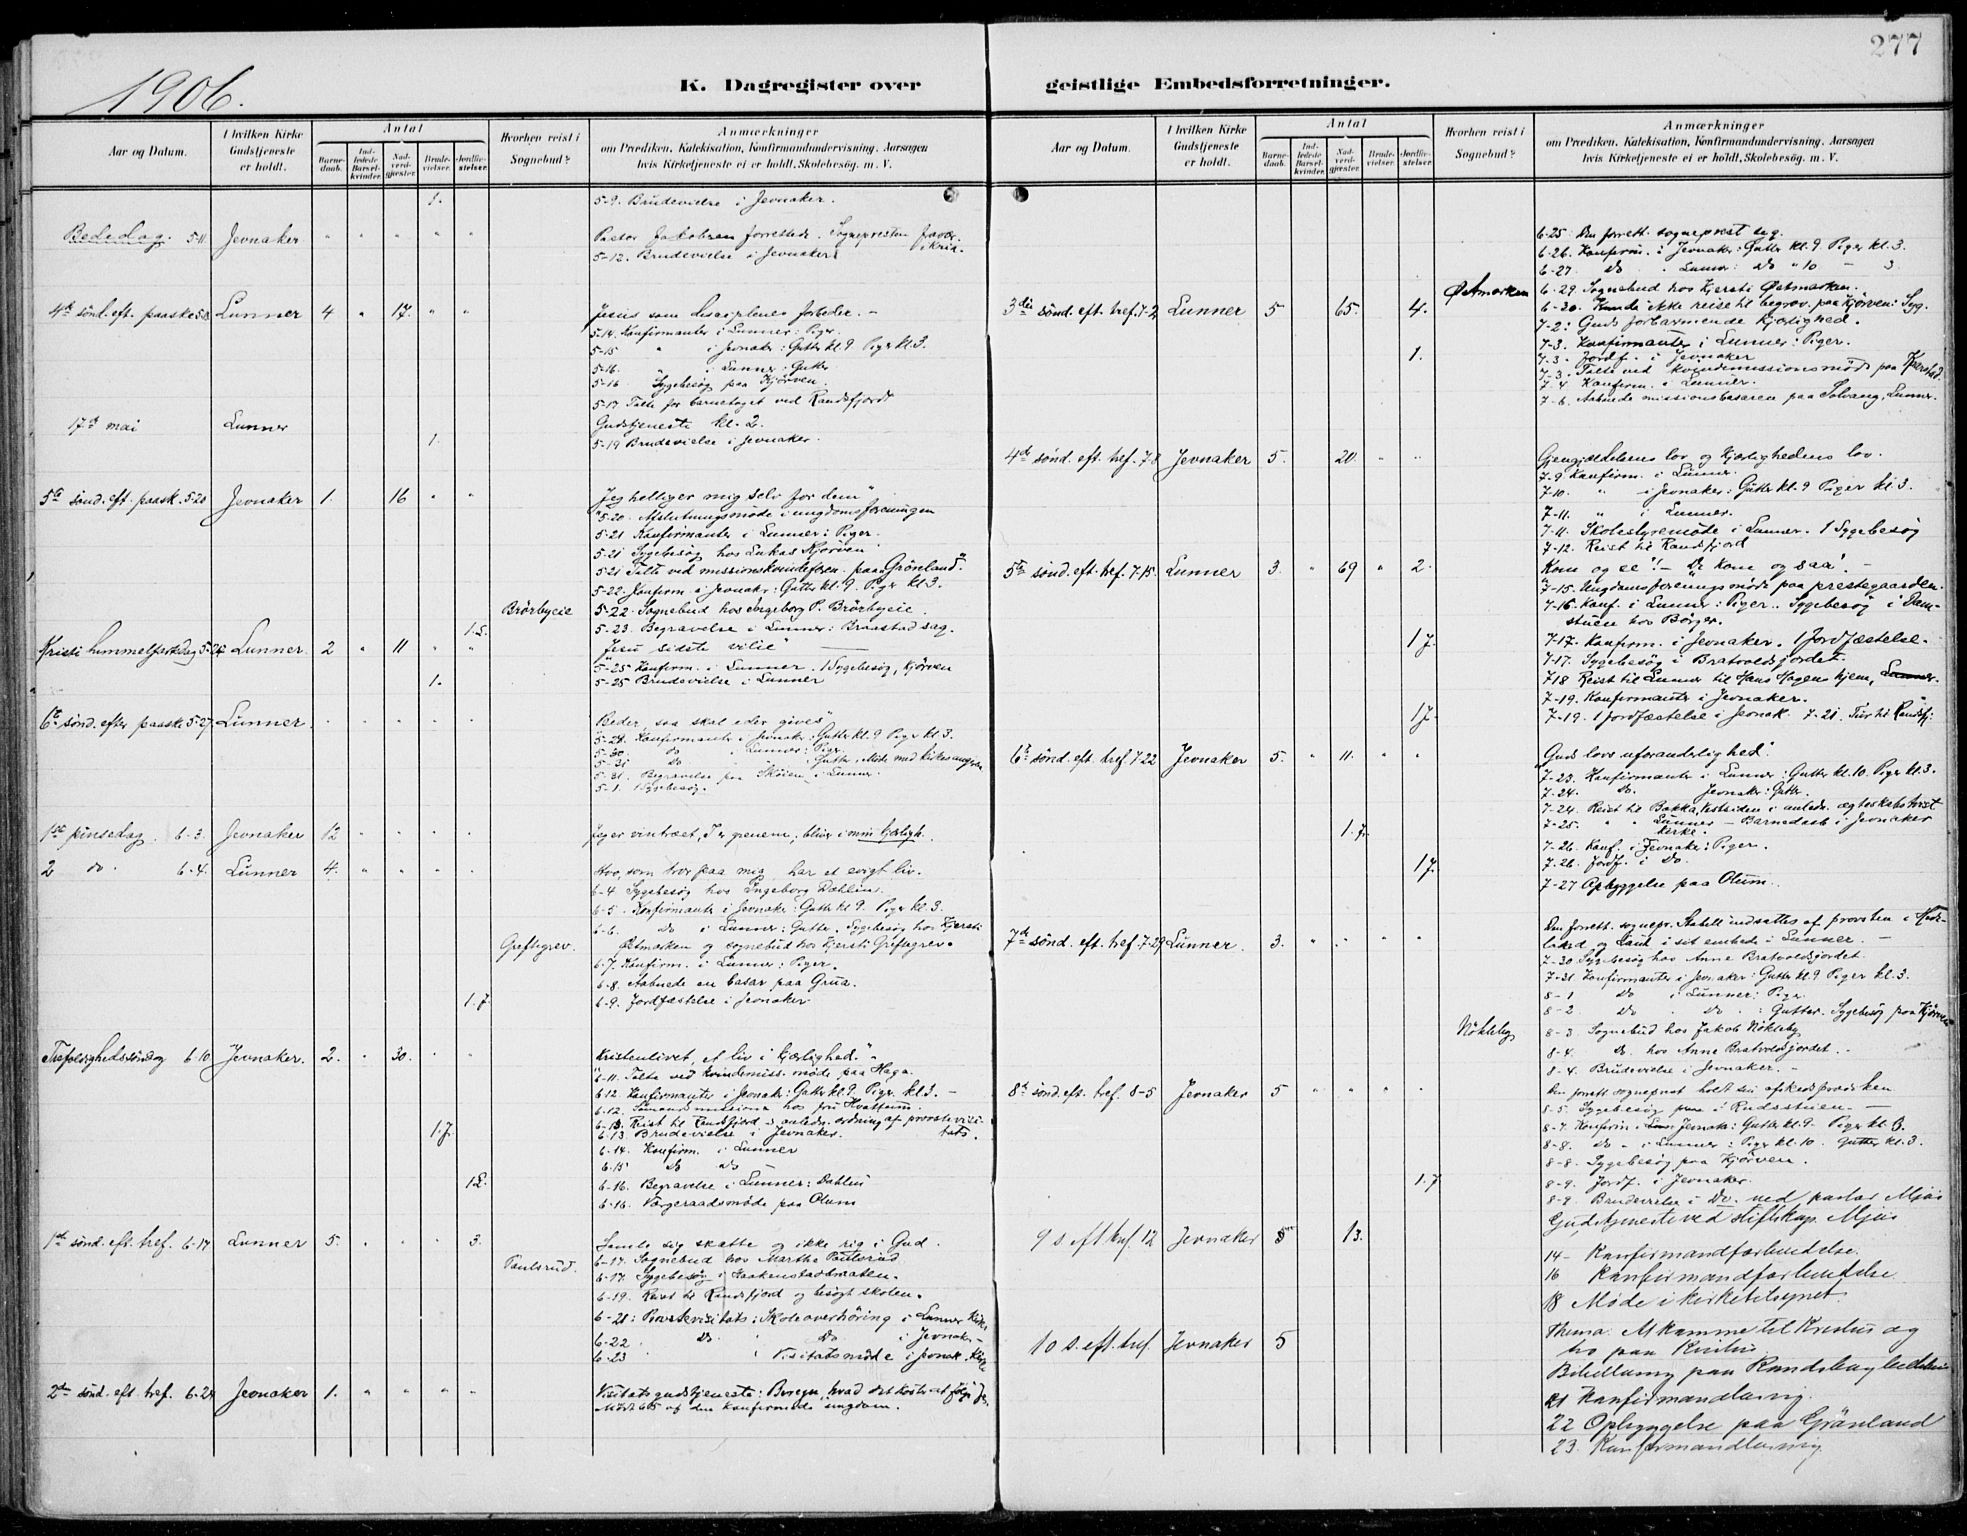 277
1906.
K. Dagregister over geistlige Embedsforretninger.
Aar og Datum.
I hvilken Kirke Gudstjeneste er holdt.
Antal
Barnedaab.
Indledede Barselkvinder.
Nadverdgjæster.
Brudevielser.
Jordfæstelser.
Hvorhen reist i Sognebud?
Anmærkninger
om Prædiken, Katekisation, Konfirmandundervisning, Aarsagen
hvis Kirketjeneste ei er holdt, Skolebesøg. m. V.
1. 5-9. Brudevielse i Jevnaker.
Bededag. 5-11 Jevnaker " " " " " Pastor Jakobsen forrettede. Sognepresten
5-12. Brudevielse i Jevnaker
4de sønd. eft. paaske 5-13 Lunner 4 " 17. " " Jesus som disciplenes forbeder. -
5-14. Konfirmanter i Lunner: Piger.
5-15 " i Jevnaker: Gutter kl. 9 Piger kl. 3.
5-16. " i Lunner: Gutter
5-16 Sygebesøg paa Kjørven.
5-17 Talte for barnetoget ved Randsfjord
17de mai Lunner Gudstjeneste kl. 2.
1. 5-19 Brudevielse i Jevnaker.
5te sønd. eft. paask. 5-20 Jevnaker 1. 16 " " "Jeg helliger mig selv for dem"
5-20. Afslutningsmøde i ungdomsforeningen
5-21 Konfirmanter i Lunner: Piger.
5-21 Sygebesøg hos Lukas Kjørven
5-21 Talte ved missionskvindeforen. paa Grønland.
5-22. Konfirm i Jevnaker: Gutter kl. 9. Piger kl. 3.
Brörbyeie 5-22. Sognebud hos Ingeborg P. Brörbyeie.
1 L. 5-23. Begravelse i Lunner: Braastad sag.
Kristi himmelfartsdag 5-24 Lunner. 2 " 11 " " "Jesu sidste vilie"
5-25 Konfirm. i Lunner. 1 Sygebesøg, Kjørven
1. 5-25 Brudevielse i Lunner
6te sønd. efter paaske 5-27 Lunner. "Beder, saa skal eder gives"
5-28. Konfirmanter i Jevnaker: Gutter kl. 9 Piger kl. 3.
5-30 do i Lunner: Piger.
5-31 Do " " : Gutter. Møde med
5-31. Begravelse paa Skøien i Lunner.
5-1. 1 Sygebesøg.
1ste pinsedag 6-3. Jevnaker 12 " " " " Jeg er vintræet, I er grenene, bliver i min kjærligh.
2 do. 6-4. Lunner 4. " " " " Hvo, som tror paa mig, har et evigt liv.
6-4 Sygebesøg hos Ingeborg Dæhlin.
6-5. Konfirmanter i Jevnaker: Gutter kl. 9. Piger kl. 3.
6-6. Do i Lunner: Gutter. Sygebesøg hos Kjersti
Greftegrev. Østmarken og sognebud hos Kjersti Greftegrev.
6-7. Konfirm. i Lunner: Piger.
6-8. Aabnede en basar paa Grua.
1. J. 6-9. Jordfæstelse i Jevnaker
Trefoldighedssøndag 6-10 Jevnaker. 2. " 30. " " "Kristenlivet, et liv i kjærlighed."
6-11. Talte ved kvindemiss. møde paa Haga.
6-12. Konfirmanter i Jevnaker: Gutter kl. 9. Piger kl. 3. -
6-12. Sømandsmissionen hos fru Hvattum.
6-13. Reist til Randsfjord i anledn. ordning af provstevisitats.
1. J. 6-13. Brudevielse i Jevnaker.
6-14. Konfirm. i Lunner
6-15 Do Do
1 L. 6-16. Begravelse i Lunner: Dahlin
6-16. Vergeraadsmøde paa Olum
1ste sønd. eft. tref. 6-17 Lunner 5. " " " 3. Samle sig skatte og ikke rig i Gud.
Paulsrud. 6-17. Sognebud hos Marthe Paulsrud
6-17. Sygebesøg i Haakenstadbraaten.
6-19. Reist til Randsfjord og besøgt skolen.
6-21: Provstevisitats: Skoleoverhöring i Lunner Kirke
6-22 Do Do i Jevnaker -
6-23 Visitatsmøde i Jevnak. Kirke
2den sønd. eft. tref. 6-24 Jevnaker 1. " " " " Visitatsgudstjeneste: Beregn, hvad det koster at følge Je.
Mødt 65 af den konfirmerede ungdom.
6-25: Den forrett. sogneprest syg.
6-26. Konfirm. i Jevnaker: Gutter kl. 9. Piger kl. 3.
6-27 do " Lunner: do " 10 - 3
Østmarken 6-29 Sognebud hos Kjersti Østmarken.
6-30. Kunde ikke reise til begrav. paa Kjørven: Syg.
3die sønd. eft. tref. 7-2 Lunner 5 65. 4. 7-2: Guds forbarmende Kjærlighed.
7-3. Konfirmanter i Lunner: Piger.
1. 7-3. Jordf. i Jevnaker
7-3. Talte ved kvindemissionsmøde paa
7-4 Konfirm. i Lunner.
7-6. Aabnede missionsbasaren paa Solvang, Lunner.
4de sønd. eft. tref. 7-8 Jevnaker 5. 20. " " Gjengjældelsens lov og Kjærlighedens lov.
7-9 Konfirm. i Lunner.
7-10. " i Jevnaker: Gutter kl. 9 Piger kl. 3.
7-11. " i Lunner.
7-11. Skolestyremøde i Lunner. 1 Sygebesøg
7-12. Reist til Randsfjord
5te sønd. eft. tref. 7-15. Lunner 3. " 69 " 2. Kom og se"! - De kom og saa! -
7-15. Ungdomsforeningsmøde paa prestegaarden.
7-16. Konf. i Lunner: Piger. Sygebesøg i Damstuen hos Börger.
1 J. 7-17. Konfirm. i Jevnaker. 1 Jordfæstelse.
7-17. Sygebesøg i Bratvoldsjordet.
7-18 Reist til Lunner til Hans Hagens hjem, Lunner.
7-19. Konfirmanter i Jevnaker.
1 J. 7-19. 1 Jordfæstelse i Jevnak. 7-21. Tur til Randsfj:
6te sønd. eft. tref. 7-22 Jevnaker 5. " 11. " " "Guds lovs uforanderlighed"
7-23. Konfirmanter i Lunner: Gutter kl. 10. Piger kl. 3.
7-24. do. Jevnaker: Gutter.
7-24. Reist til Bakka, Vestsiden i anledn. ægteskabstvist
7-25. " " Lunner - Barnedaab i Jevnaker kirke.
1. J. 7-26. Konf. i Jevnaker: Piger.
1 J. 7-26. Jordf. i Do.
7-27 Opbyggelse paa Olum.
7de sønd. eft. tref. 7-29 Lunner. 3. " " " " Den forrett. sognepr. Stabell indsattes af provsten i
Land i sit embede i Lunner. -
7-30 Sygebesøg hos Anne Bratvoldsjordet.
7-31 Konfirmanter i Jevnaker: Gutter kl. 9 Piger kl. 3.
8-1 Do i Lunner: Piger.
8-2 Do Do : Gutter. Sygebesøg paa Kjörven
Nökleby 8-3. Sognebud hos Jakob Nökleby
8-4. Do. hos Anne Bratvoldsjordet. -
8-4. Brudevielse i Jevnaker. -
8de sønd. eft. tref 8-5 Jevnaker 5 " " " " Den forrett. sogneprest holdt sin afskedsprædiken.
8-5. Sygebesøg paa i Rudsstuen. -
8-7 Konfirm i Jevnaker: Gutter kl. 9. Piger kl. 3.
8-8. Do " i Lunner: Piger kl. 10. Gutter kl. 3.
8-8. Sygebesøg paa Kjörven.
1. J 8-9. Jordf. i Jevnaker.
8-9. Brudevielse i Do. ved pastor Mjøs
9 s eft tref. 12 Jevnaker 5 13. Gudstjeneste ved stiftskap. Mjøs
14 - Konfirmandforberedelse.
16 Konfirmandforberedelse
18 Møde i kirketilsynet.
10 s. eft. tref. Jevnaker 5 Thema: At komme til Kristus og
tro paa Kristus
Bibellæsning paa
21 Konfirmandlæsning.
22 Opbyggelse paa Grönland
23. Konfirmandlæsning